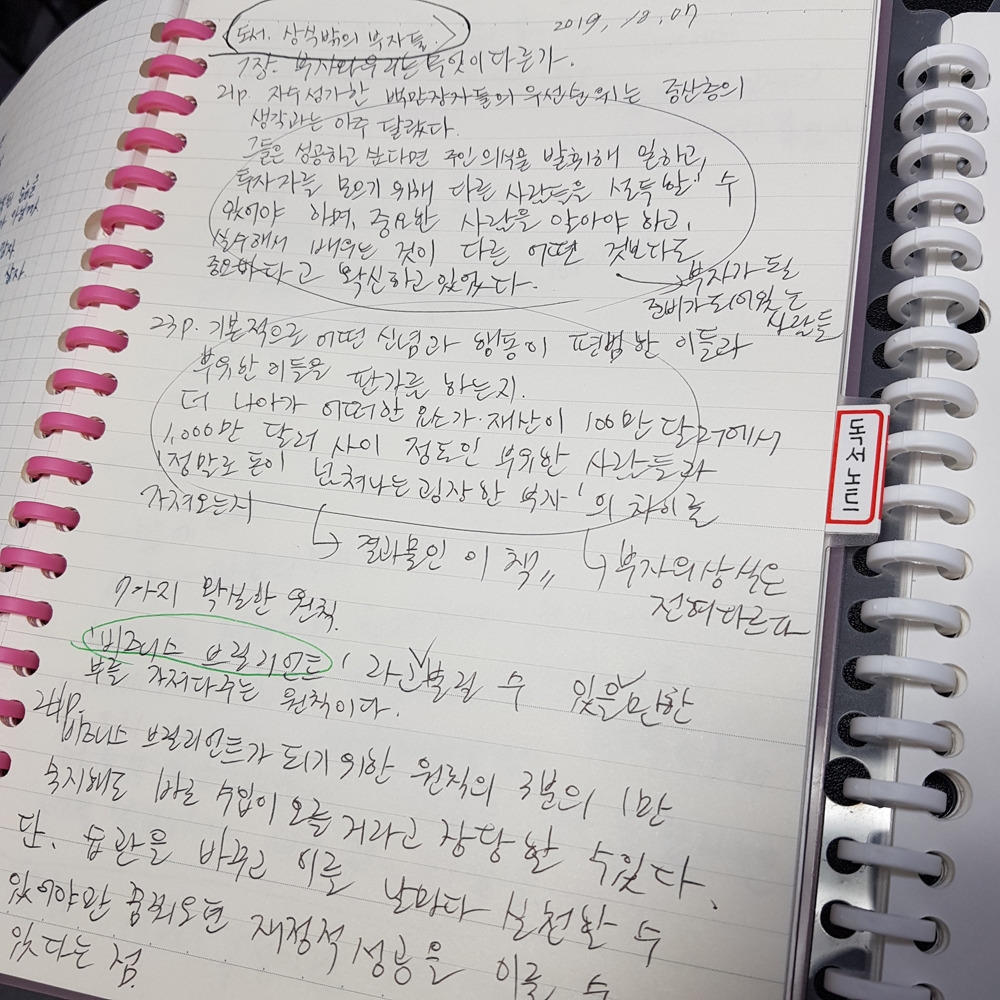 도서. 상식밖의 부자들.
2019. 10. 07
1장. 부자와 우리는 무엇이 다른가.
21p. 자수성가한 백만장자들의 우선순위는 중산층의
생각과는 아주 달랐다.
그들은 성공하고 싶다면 주인의식을 발휘해 일하고,
투자자를 모으기 위해 다른 사람들을 설득할 수
있어야 하며, 중요한 사람을 알아야 하고,
실수해서 배우는 것이 다른 어떤 것보다도
중요하다고 확신하고 있었다.
부자가 될
준비가 되어있는
사람들
23p. 기본적으로 어떤 신념과 행동이 평범한 이들과
부유한 이들을 판가름 하는지.
더 나아가 어떠한 요소가 재산이 100만 달러에서
1,000만 달러 사이 정도인 부유한 사람들과
'정말로 돈이 넘쳐나는 굉장한 부자'의 차이를
가져오는지
결과물인 이 책〃
부자의 상식은
전혀 다르다
7가지 확실한 원칙.
'비즈니스 브릴리언트' 라고 불릴 수 있을 만한
부를 가져다주는 원칙이다.
24p.
비즈니스 브릴리언트가 되기 위한 원칙의 3분의 1만
숙지해도 바로 수입이 오를거라고 장담할 수 있다.
단. 습관을 바꾸고 이를 날마다 실천할 수
있어야만 재정적 성공을 이룰 수
있다는 점.
독서노트